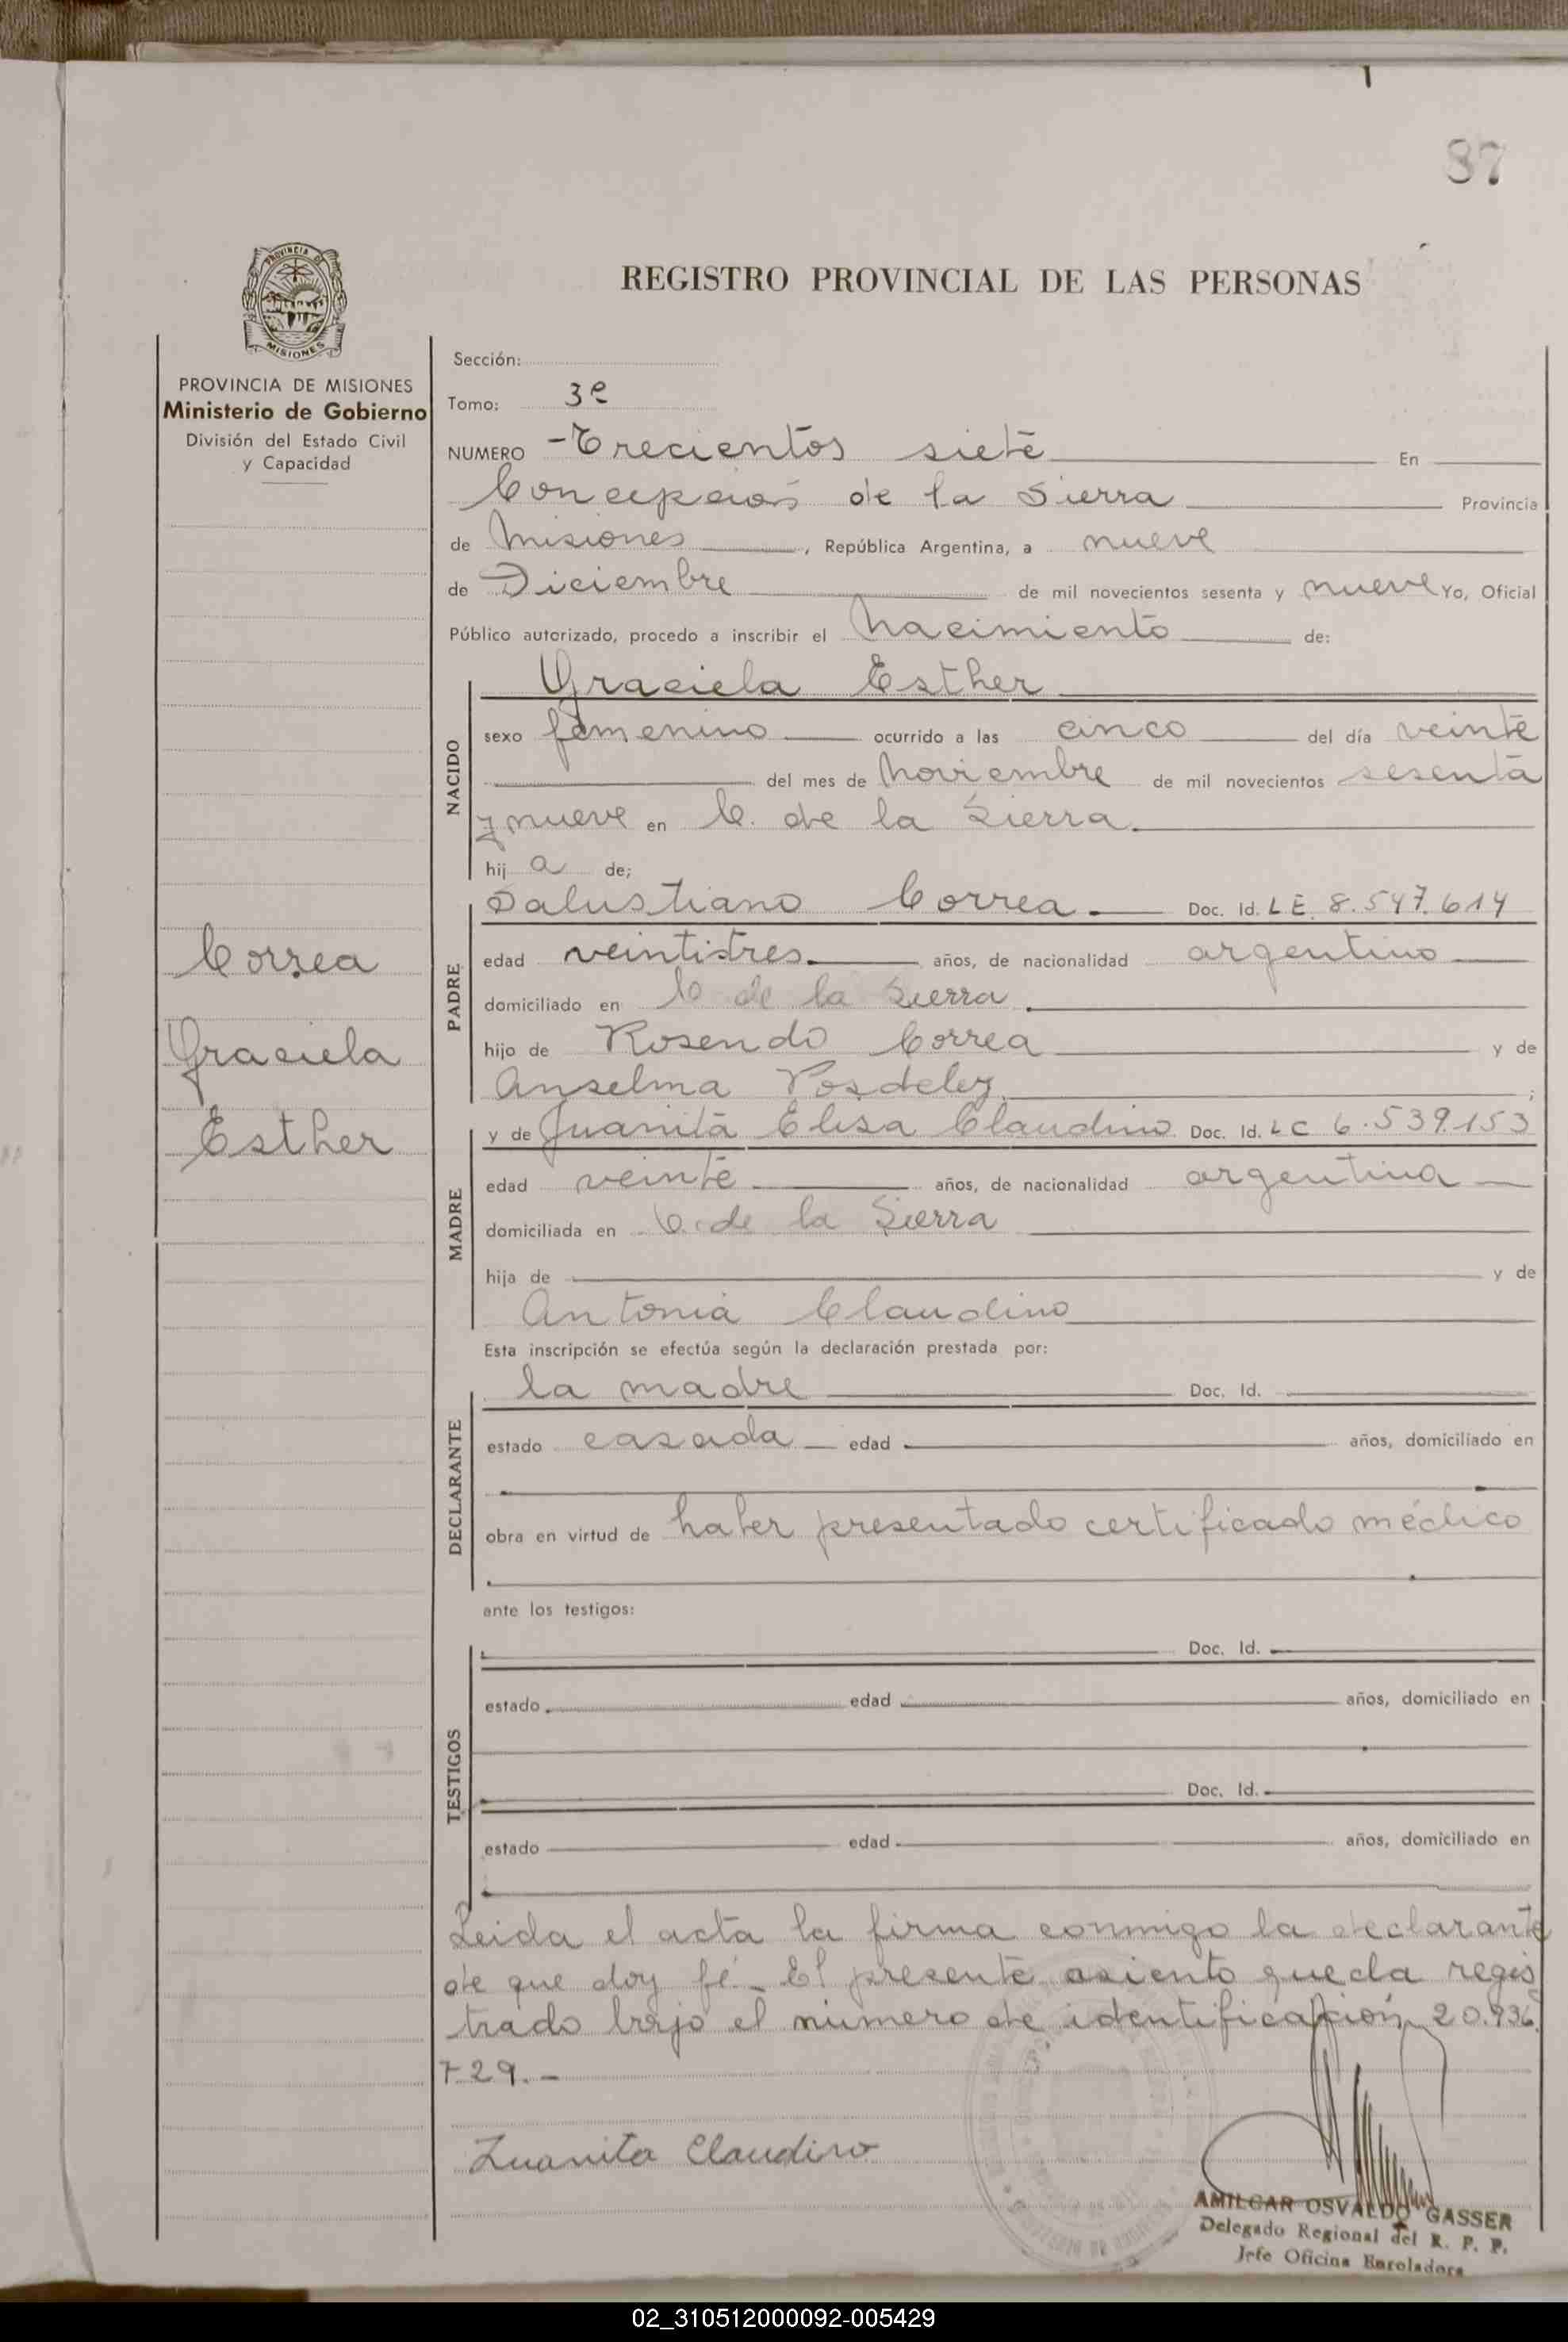 87
REGISTRO PROVINCIAL DE LAS PERSONAS
PROVINCIA DE
MISIONES
PROVINCIA DE MISIONES
Ministerio de Gobierno
División del Estado Civil
y Capacidad
Correa
Graciela
Esther
Sección:
Tomo: 3º
NUMERO - Trecientos siete En
Concepción de la Sierra Provincia
de Misiones, República Argentina, a nueve
de Diciembre de mil novecientos sesenta y nueve Yo, Oficial
Público autorizado, procedo a inscribir el Nacimiento de:
Graciela Esther
NACIDO
sexo femenino ocurrido a las cinco del día veinte
del mes de Noviembre de mil novecientos sesenta
y nueve en C. de la Sierra.
hij a de;
Salustiano Correa Doc. Id. L E. 8.547.614
PADRE
edad veintitres años, de nacionalidad argentino
domiciliado en C de la Sierra.
hijo de Rosendo Correa y de
Anselma ;
y de Juanita Elisa Claudino Doc. Id. L C 6.539.153
MADRE
edad veinte años, de nacionalidad argentina
domiciliada en C. de la Sierra
hija de y de
Antonia Claudino
Esta inscripción se efectúa según la declaración prestada por:
la madre Doc. Id.
DECLARANTE
estado casada edad años, domiciliado en
obra en virtud de haber presentado certificado médico
ante los testigos:
Doc. Id.
TESTIGOS
estado edad años, domiciliado en
Doc. Id.
estado edad años, domiciliado en
Leida el acta la firma conmigo la declarante
de que doy fé.- El presente asiento queda regis
trado bajo el número de identificación 20.936.
729.-
Juanita Claudino
AMILCAR OSVALDO GASSER
Delegado Regional del R. P. P.
Jefe Oficina Enroladora
02_310512000092-005429